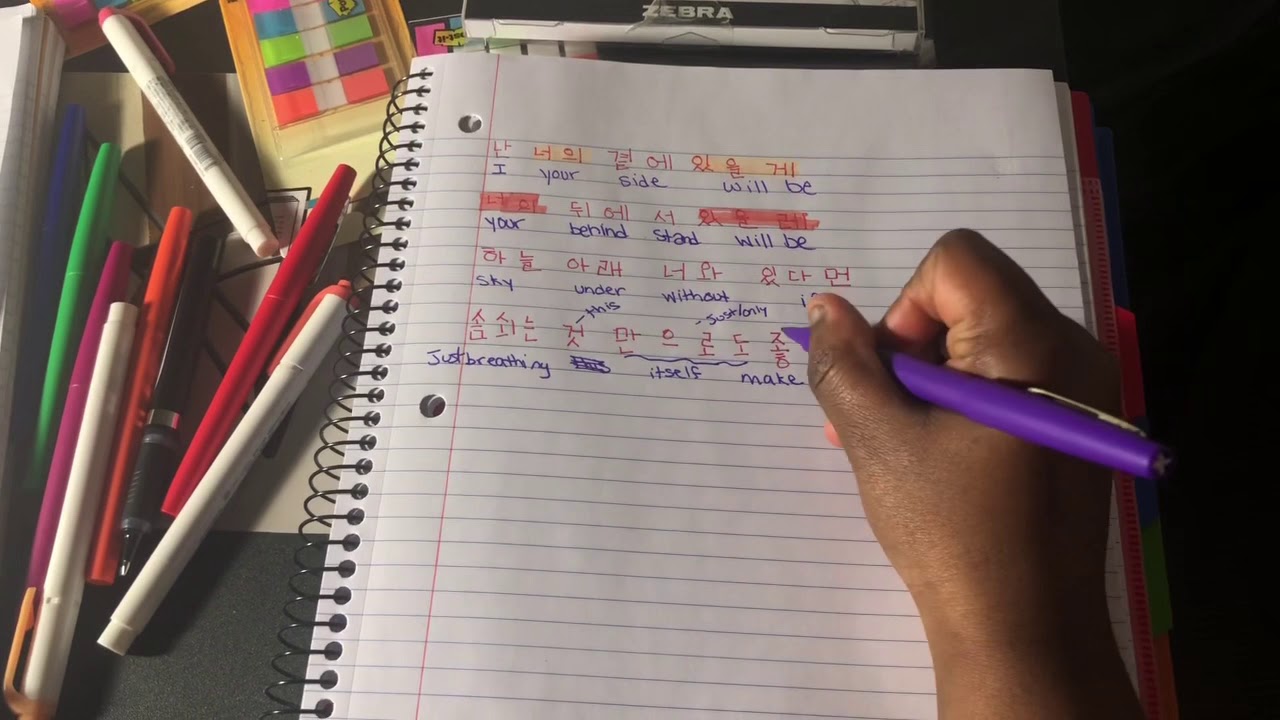 ZEBRA
난 너의 곁에 있을 게
I your side will be
너의 뒤에 서 있을 레
your behind stand will be
하늘 아래 너와 있다면
sky under without
this just/only
숨쉬는 것 만 으 로 도
Just breathing itself make